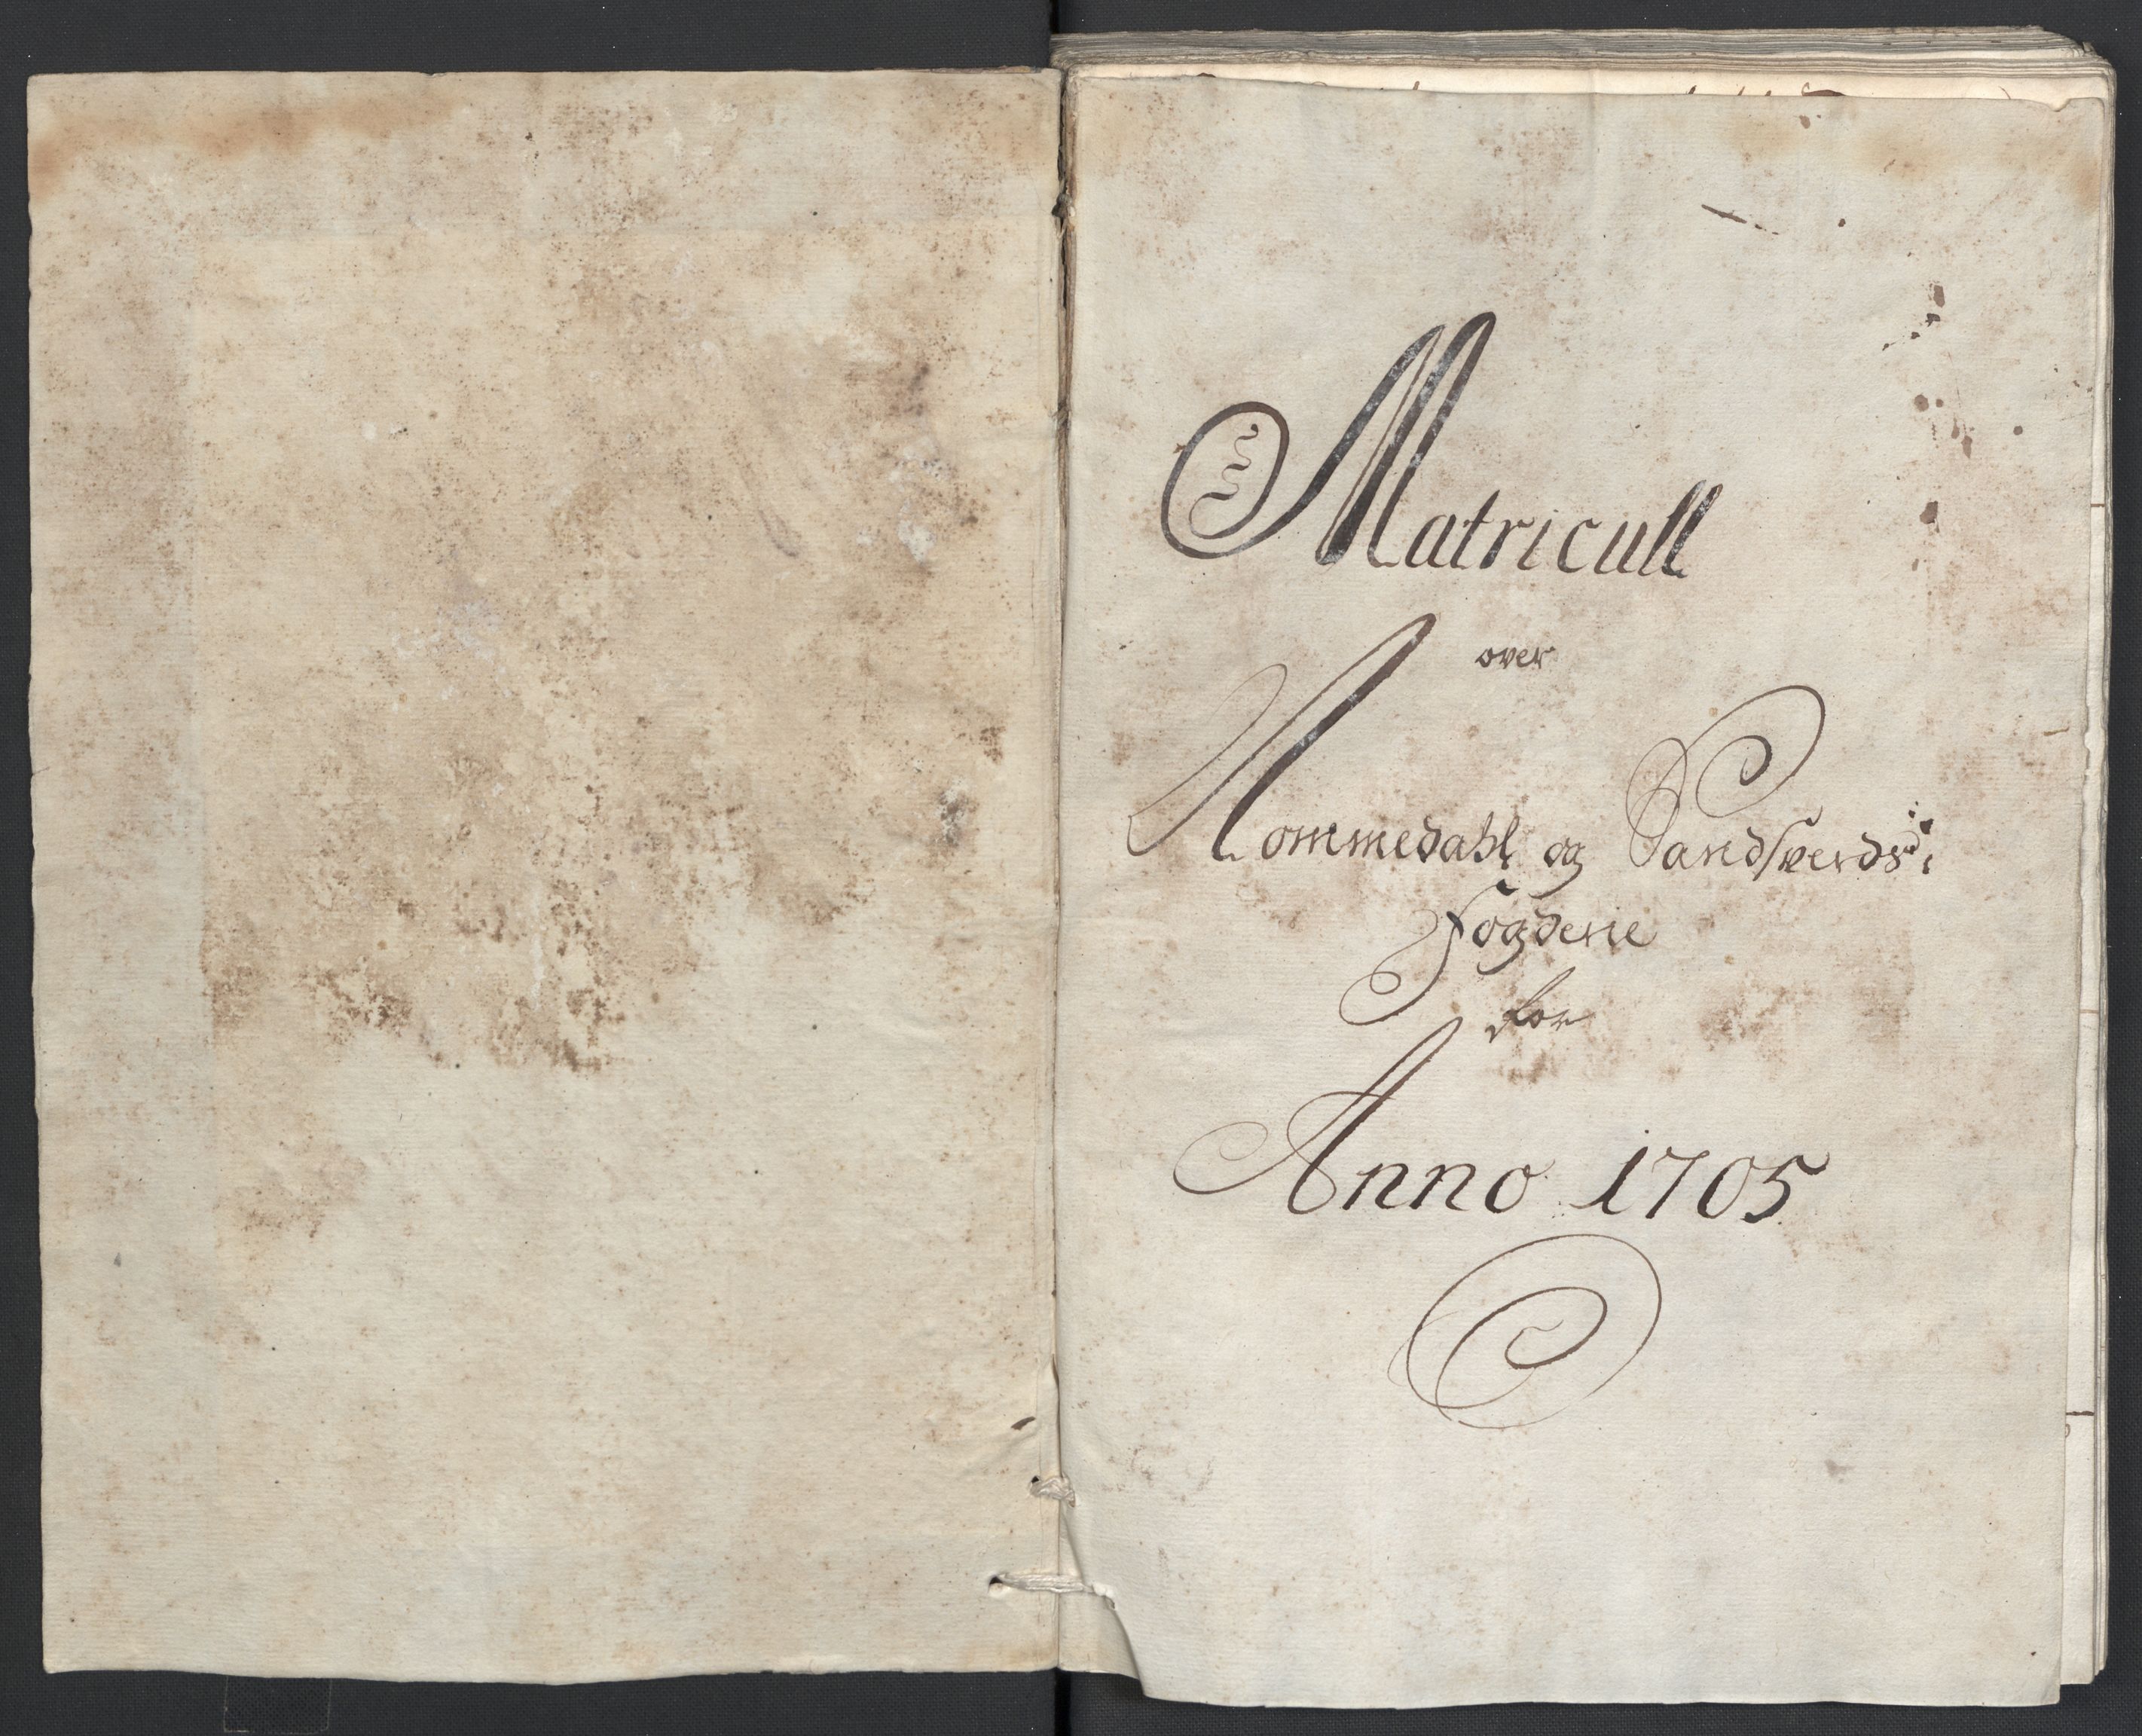 Matricull
over
Nommedahl og Sandsverds
Fogderie
for
Anno 1705